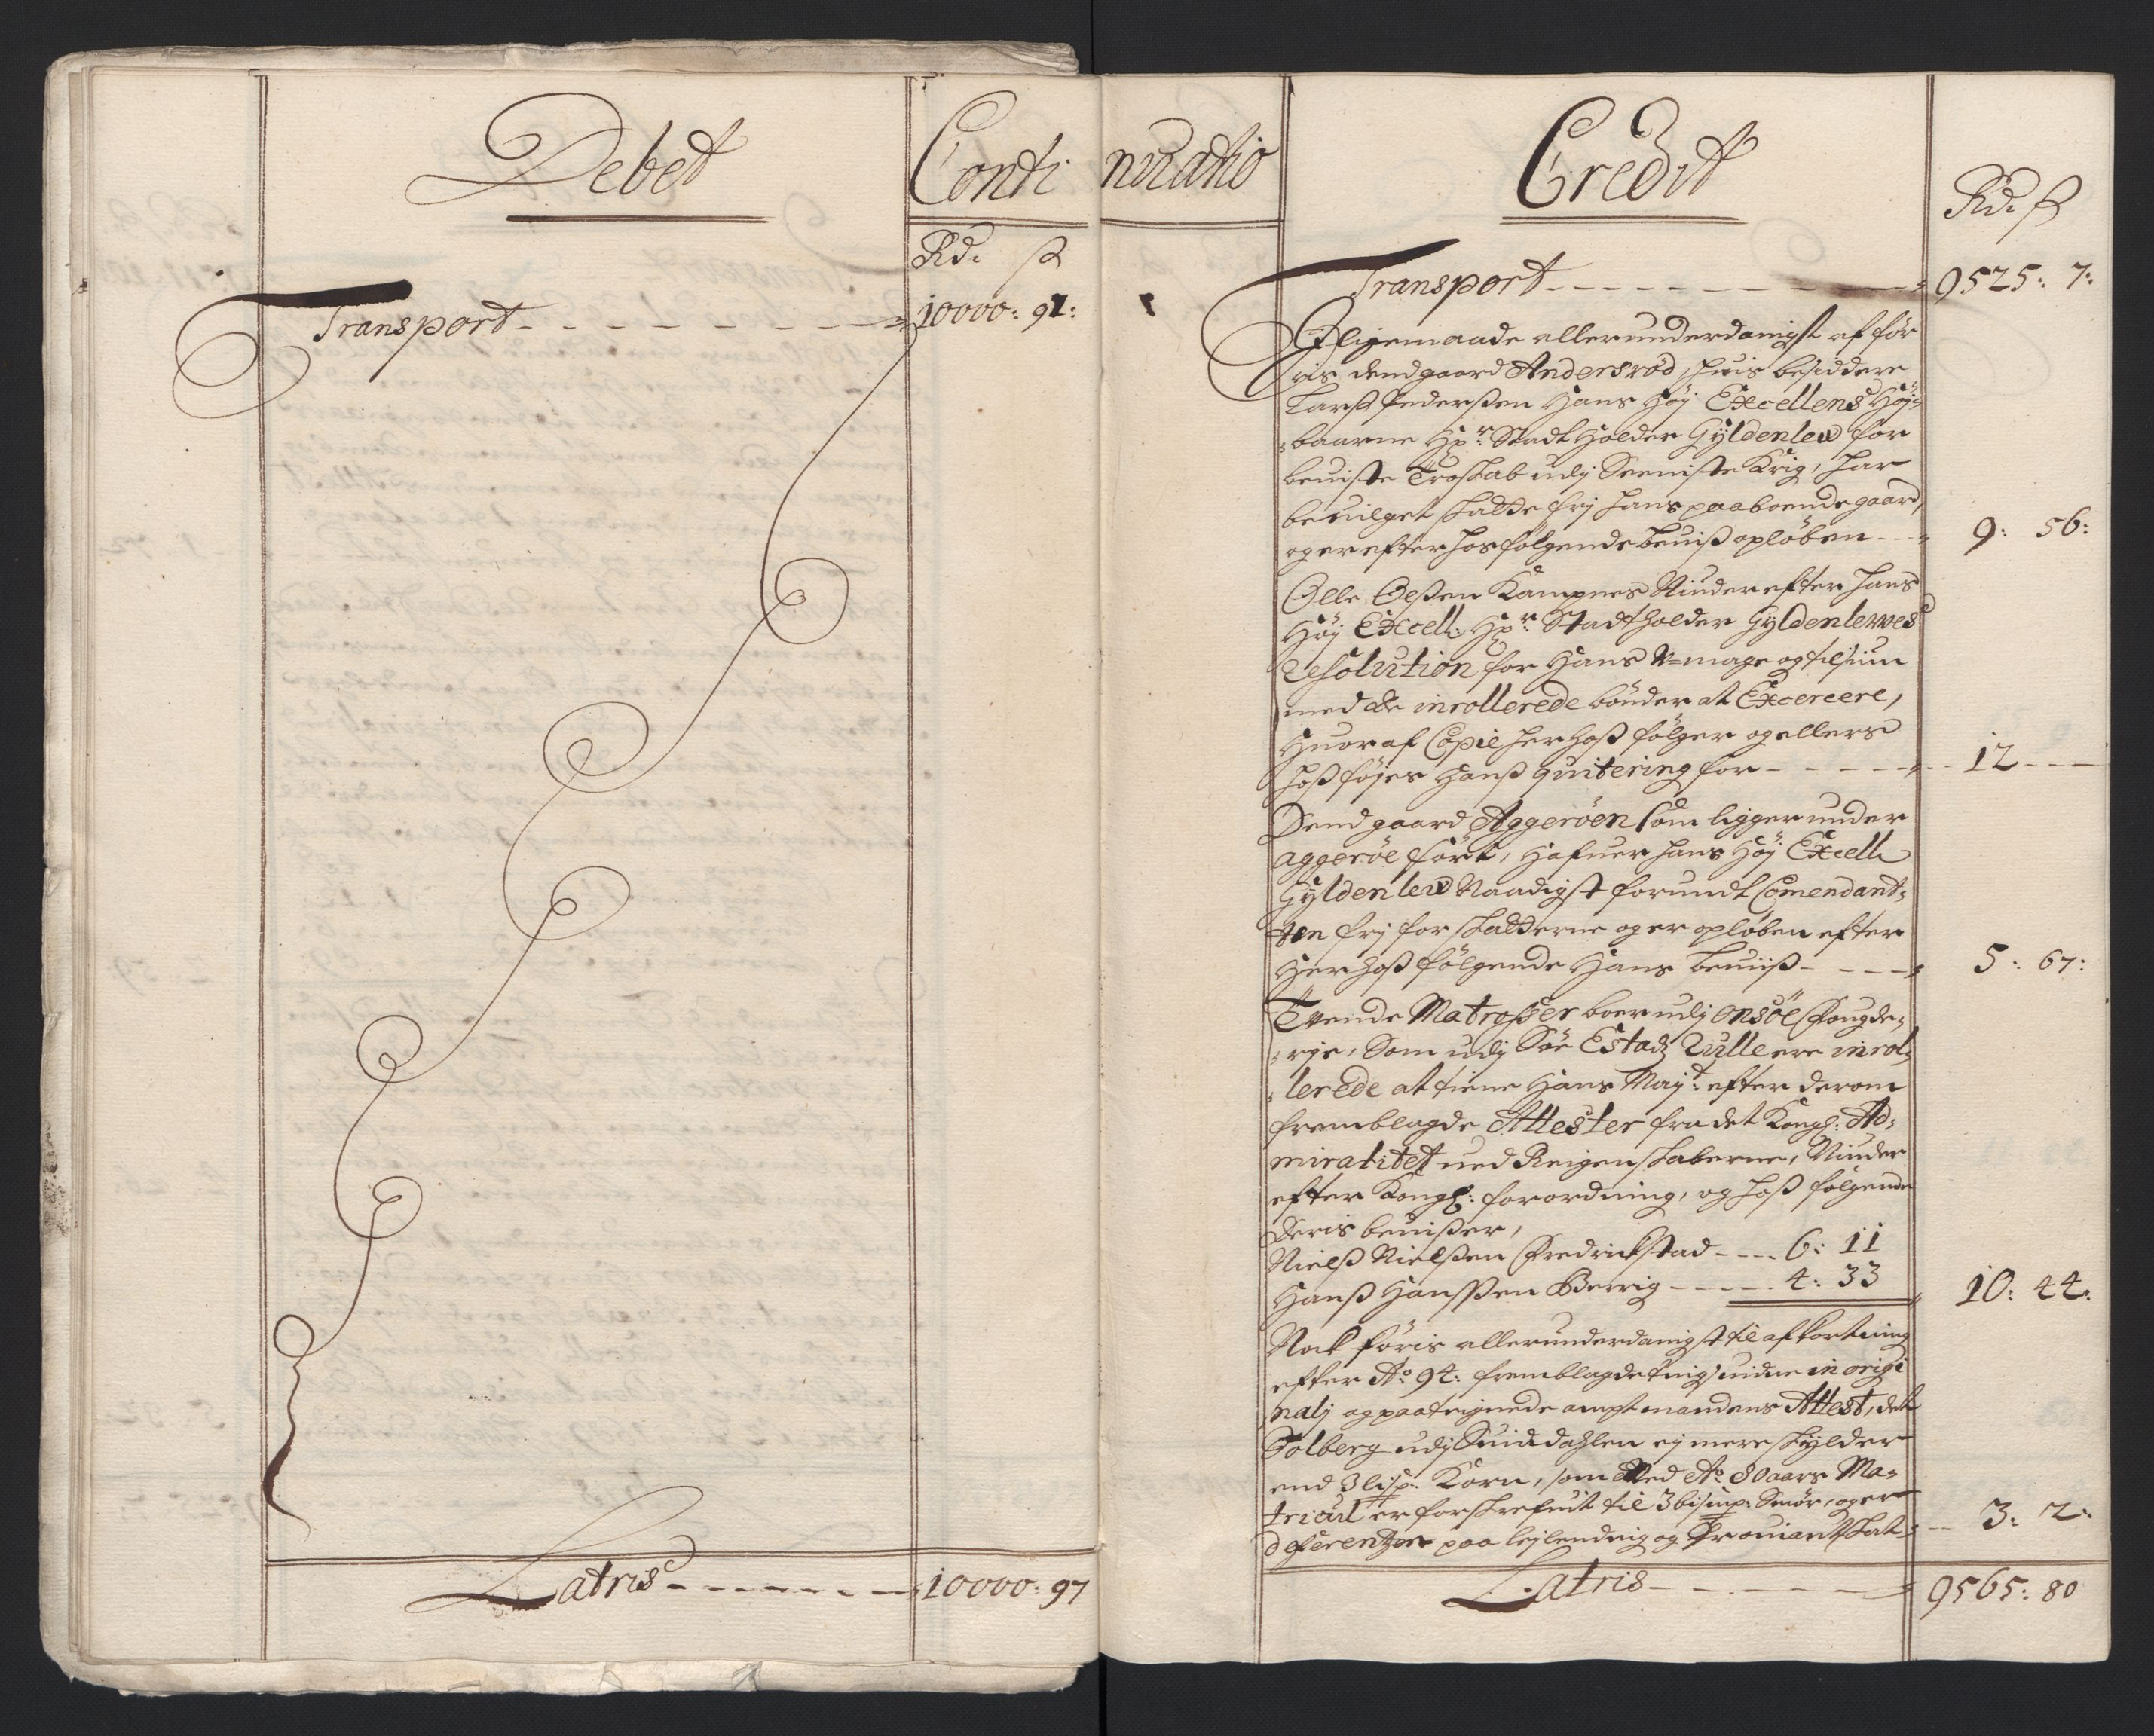 Debet
Conti
Rd. ß
Transport - - - - - - - - 10000: 91:
Latris - - - - - - - 10000: 97
nuatio
Credit
Rd. ß
Transport - - - - - - - - 9525: 7:
J ligemaade allerunderdanigst af før
ris dend gaard Andersrød, huis besiddere
Larß Pederßen Hans Høy Excellens Høy=
baarne Hr: Stadtholder Gyldenlew for
beuiste Troskab udj Seeniste Krig, har
beuilget skatte frj hans paaboende gaard,
og er efter hosfølgende beuiß opløben - - - 9: 56:
Olle Olßen Kampnes Niuder efter hans
Høy Excell: Hr: Stadtholder Gyldenlewes
Resolution for Hans V=mage og tilsiun
med de inrollerede bønder at Excercere,
Huoraf Copie her hoß følger og ellers
hoß føyes Hanß quitering for - - - - - 12 - - -
Dend gaard Aggerøen som ligger under
aggerøe fört, Hafuer hans Høy Excell
Gyldenlew Naadigst forundt Comendant=
ten frj for skatterne og er opløben efter
Her hoß følgende Hans beuiß - - - - 5: 67:
Tvende Matroßer boer udj Onsøe Fougde=
rie, Som udj Søe Estadz Rulle ere inrol=
lerede at tiene Hans Mayt: efter derom
fremblagde Attester fra det Kongl: Ad=
miralitet ued Reigenskaberne, Niuder
efter Kongl: forordning, og hoß følgende
deris beuißer,
Nielß Nielßen Fredrichstad - - - - 6: 11
Hanß Hanßen Berrig - - - - - 4: 33 10: 44:
Nok føris allerunderdanigst til afkortning
efter Ao: 94: fremblagde tingsuidne in origi
nalj og paateignede amptmandens Attest, det
Solberg udj Skiddahlen ej mere skylder
end 3 lisp: Korn, som ued Ao: 80 aars Ma=
tricul er forskrefuit til 3 bismp: Smør, og er
deferentzen paa leylending og Prouiantskat - - 3: 2:
Latris - - - - - - 9565: 80